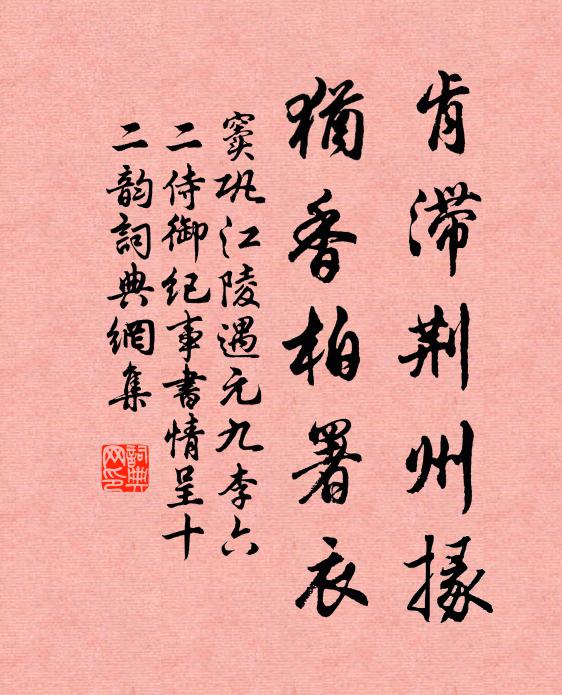 肯滞荆州掾
猶香柏署衣
窦巩江陵遇元九李六
二侍御纪事書情呈十
二韵詞典網集
詞典网印